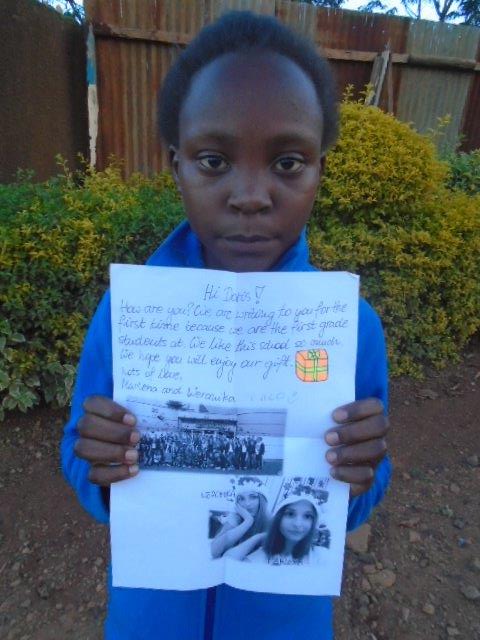 Hi Dorös!
How are you? We are writing to you for the
first time because we are the first grade
students at. We like this school so much.
We hope you will enjoy our gift.
Lots of love,
Marlena and Weronika